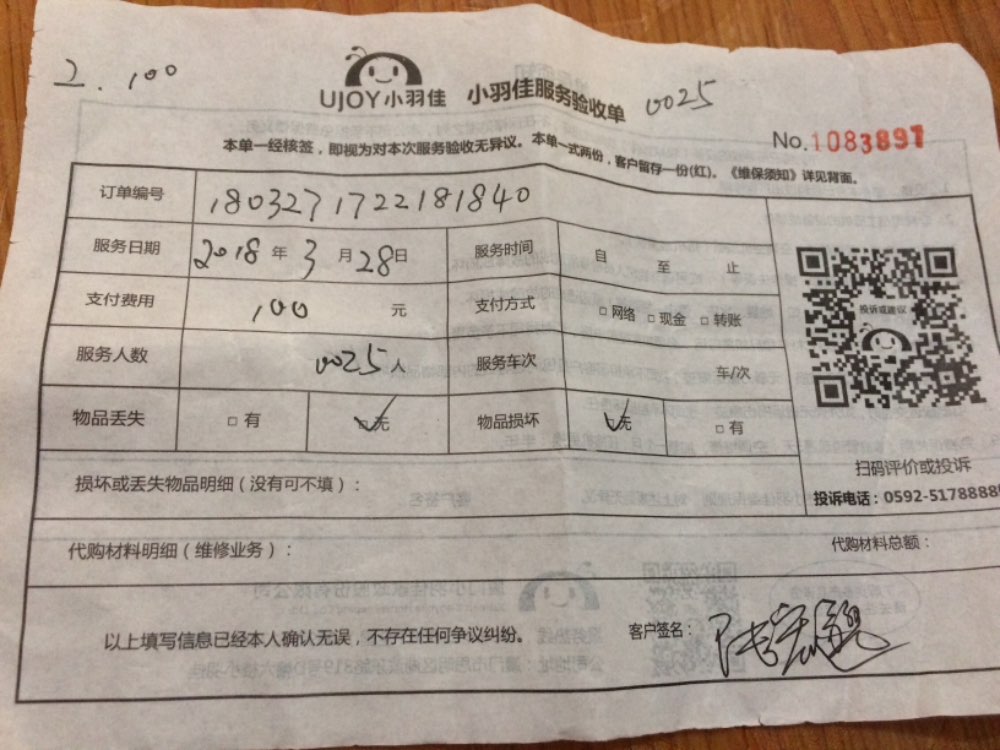 2. 100
UJOY小羽佳 小羽佳服务验收单 0025
No.1083897
本单一经核签，即视为对本次服务验收无异议。本单一式两份，客户留存一份(红)。《维保须知》详见背面。
订单编号 1803271722181840
服务日期 2018年3月28日 服务时间 自 至 止
支付费用 100 元 支付方式 □网络 □现金 □转账
服务人数 0025人 服务车次 车/次
物品丢失 □有 ☑无 物品损坏 ☑无 □有
投诉或建议
扫码评价或投诉
损坏或丢失物品明细（没有可不填）：
投诉电话：0592-5178888
代购材料明细（维修业务）： 代购材料总额：
以上填写信息已经本人确认无误，不存在任何争议纠纷。 客户签名：